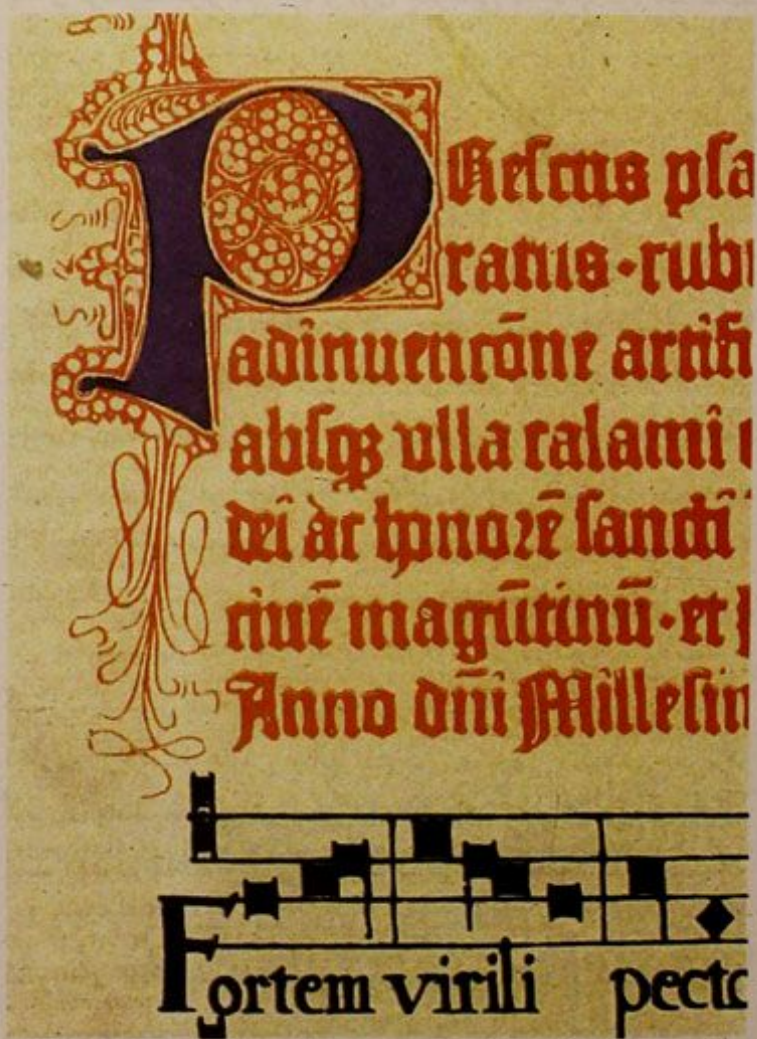 PReſens pſa
ratus·rubi
adinuencōne artifi
abſqꝫ vlla calami
dei ac honorē ſancti
ciuē magūtinū·et
Anno dn̄i Milleſim
Fortem virili pecto